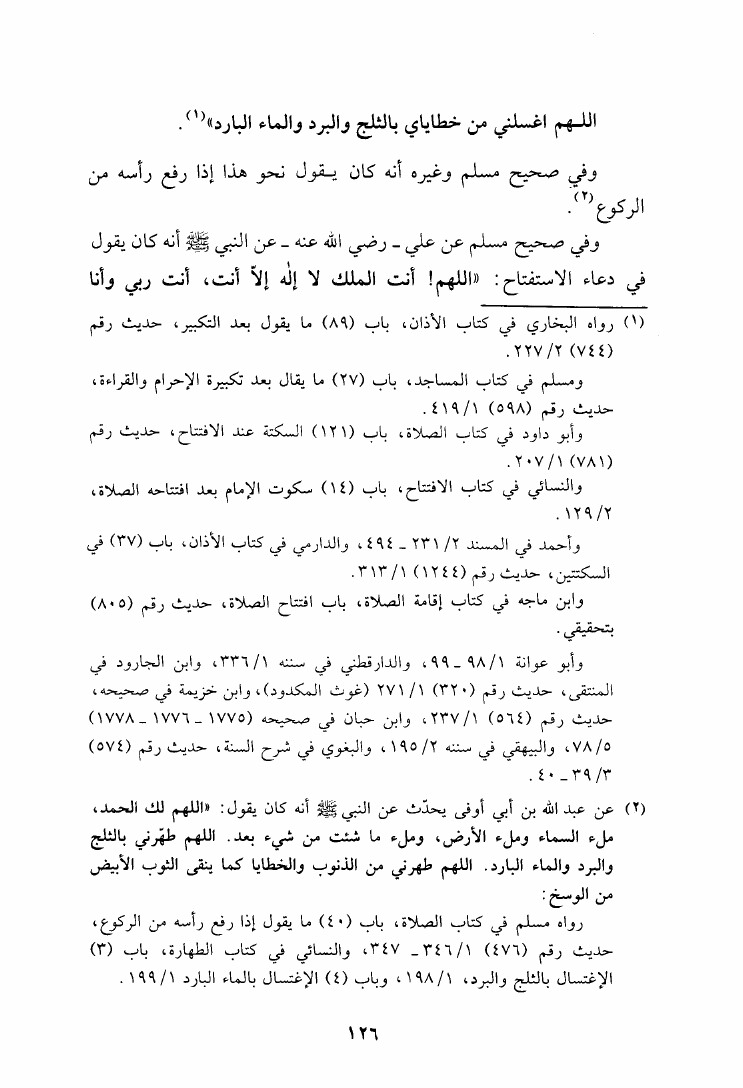 اللـهم اغسلني من خطاياي بالثلج والبرد والماء البارد»(١).
وفي صحيح مسلم وغيره أنه كان يـقول نحو هذا إذا رفع رأسه من
الركوع(٢).
وفي صحيح مسلم عن علي ـ رضي الله عنه ـ عن النبي ﷺ أنه كان يقول
في دعاء الاستفتاح: «اللهم! أنت الملك لا إلٰه إلاّ أنت، أنت ربي وأنا
(١) رواه البخاري في كتاب الأذان، باب (٨٩) ما يقول بعد التكبير، حديث رقم
(٧٤٤) ٢٢٧/٢.
ومسلم في كتاب المساجد، باب (٢٧) ما يقال بعد تكبيرة الإحرام والقراءة،
حديث رقم (٥٩٨) ٤١٩/١.
وأبو داود في كتاب الصلاة، باب (١٢١) السكتة عند الافتتاح، حديث رقم
(٧٨١) ٢٠٧/١.
والنسائي في كتاب الافتتاح، باب (١٤) سكوت الإمام بعد افتتاحه الصلاة،
١٢٩/٢.
وأحمد في المسند ٢٣١/٢ ـ ٤٩٤، والدارمي في كتاب الأذان، باب (٣٧) في
السكتتين، حديث رقم (١٢٤٤) ٣١٣/١.
وابن ماجه في كتاب إقامة الصلاة، باب افتتاح الصلاة، حديث رقم (٨٠٥)
بتحقيقي.
وأبو عوانة ٩٨/١ ـ ٩٩، والدارقطني في سننه ٣٣٦/١، وابن الجارود في
المنتقى، حديث رقم (٣٢٠) ٢٧١/١ (غوث المكدود)، وابن خزيمة في صحيحه،
حديث رقم (٥٦٤) ٢٣٧/١، وابن حبان في صحيحه (١٧٧٥ ـ ١٧٧٦ ـ ١٧٧٨)
٧٨/٥، والبيهقي في سننه ١٩٥/٢، والبغوي في شرح السنة، حديث رقم (٥٧٤)
٣٩/٣ ـ ٤٠.
(٢) عن عبد الله بن أبي أوفى يحدّث عن النبي ﷺ أنه كان يقول: «اللهم لك الحمد،
ملء السماء وملء الأرض، وملء ما شئت من شيء بعد. اللهم طهّرني بالثلج
والبرد والماء البارد. اللهم طهرني من الذنوب والخطايا كما ينقى الثوب الأبيض
من الوسخ:
رواه مسلم في كتاب الصلاة، باب (٤٠) ما يقول إذا رفع رأسه من الركوع،
حديث رقم (٤٧٦) ٣٤٦/١ ـ ٣٤٧، والنسائي في كتاب الطهارة، باب (٣)
الإغتسال بالثلج والبرد، ١٩٨/١، وباب (٤) الإغتسال بالماء البارد ١٩٩/١.
١٢٦